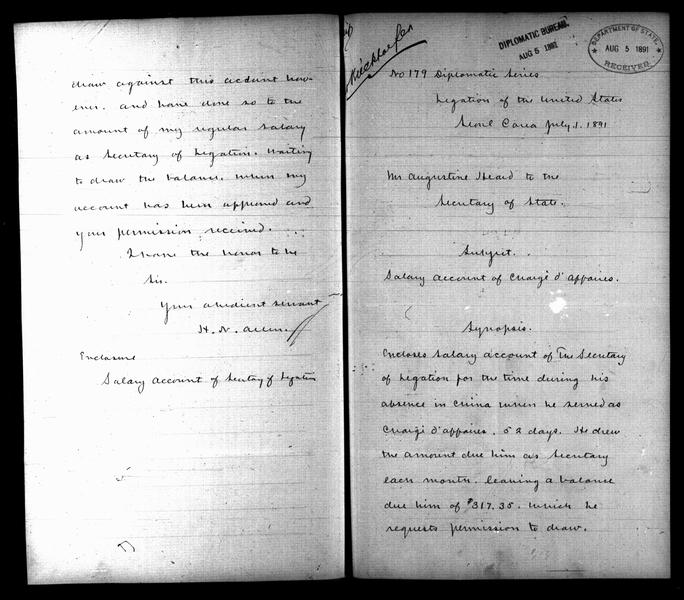 draw against this account how-
ever. and have done so to the
amount of my regular salary
as Secretary of Legation. waiting
to draw the balance. when my
account has been approved and
your permission received.
I have the honor to be
Sir.
Your obedient servant
H. N. Allen.
Enclosure
Salary Account of Secretary of Legation
DIPLOMATIC BUREAU.
AUG 5 1891
DEPARTMENT OF STATE
AUG 5 1891
RECEIVED.
No 179 Diplomatic Series
Legation of the United States
Seoul Corea July 1. 1891
Mr Augustine Heard to the
Secretary of State.
Subject.
Salary account of Chargé d'affaires.
Synopsis.
Encloses salary account of The Secretary
of Legation for the time during his
absence in China when he served as
Chargé d'affaires. 52 days. He drew
the amount due him as Secretary
each month. leaving a balance
due him of $317.35. which he
requests permission to draw.